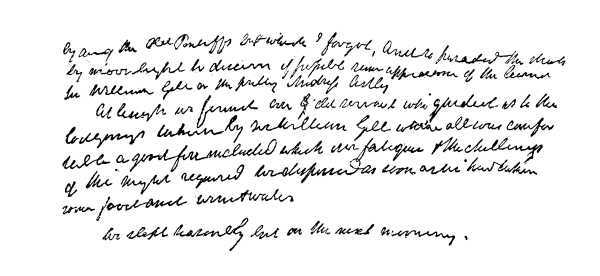 by any the old but which I forgot, and so paraded the streets
by moonlight to discover if possible some appearance of the learned
Sir William Gell or the pretty
At length we found our old servant who guided us to the
lodgings taken by Sir William Gell where all was comfor
table a good fire included which our fatigue & the chillings
of the night required we dispersed as soon as we had taken
some food and wine & water
We slept late on the next morning.